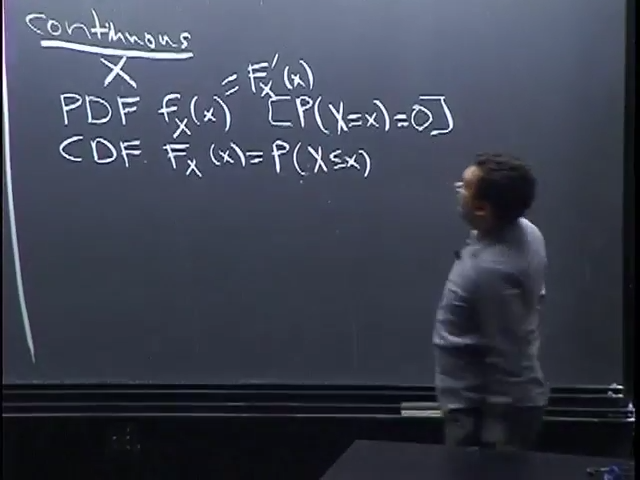 continuous
X
PDF f_X(x) = F_X'(x) [P(X=x)=0]
CDF F_X(x) = P(X≤x)